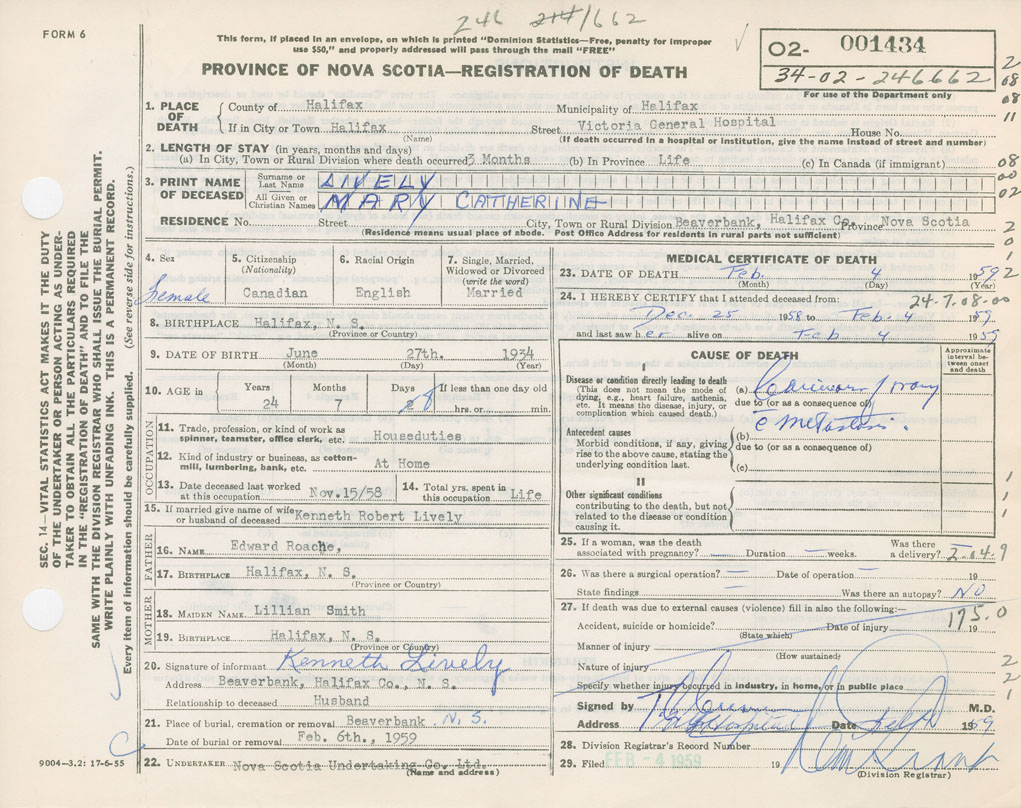 246 214/662
FORM 6
This form, if placed in an envelope, on which is printed "Dominion Statistics—Free, penalty for improper
use $50," and properly addressed will pass through the mail "FREE"
PROVINCE OF NOVA SCOTIA—REGISTRATION OF DEATH
O2- 001434
34-02-246662
For use of the Department only
1. PLACE OF DEATH
County of Halifax Municipality of Halifax
If in City or Town Halifax Street Victoria General Hospital House No.
(Name) (If death occurred in a hospital or institution, give the name instead of street and number)
2. LENGTH OF STAY (in years, months and days)
(a) In City, Town or Rural Division where death occurred 3 Months (b) In Province Life (c) In Canada (if immigrant)
3. PRINT NAME OF DECEASED
Surname or Last Name LIVELY
All Given or Christian Names MARY CATHERIINE
RESIDENCE No. Street City, Town or Rural Division Beaverbank, Halifax Co. Province Nova Scotia
(Residence means usual place of abode. Post Office Address for residents in rural parts not sufficient)
4. Sex Female
5. Citizenship (Nationality) Canadian
6. Racial Origin English
7. Single, Married, Widowed or Divorced (write the word) Married
8. BIRTHPLACE Halifax, N. S.
(Province or Country)
9. DATE OF BIRTH June 27th. 1934
(Month) (Day) (Year)
10. AGE in Years 24 Months 7 Days 8 If less than one day old hrs. or min.
OCCUPATION
11. Trade, profession, or kind of work as spinner, teamster, office clerk, etc. Houseduties
12. Kind of industry or business, as cotton-mill, lumbering, bank, etc. At Home
13. Date deceased last worked at this occupation Nov.15/58 14. Total yrs. spent in this occupation Life
15. If married give name of wife or husband of deceased Kenneth Robert Lively
FATHER
16. NAME Edward Roache,
17. BIRTHPLACE Halifax, N. S.
(Province or Country)
MOTHER
18. MAIDEN NAME Lillian Smith
19. BIRTHPLACE Halifax, N. S.
(Province or Country)
20. Signature of informant Kenneth Lively
Address Beaverbank, Halifax Co., N. S.
Relationship to deceased Husband
21. Place of burial, cremation or removal Beaverbank N. S.
Date of burial or removal Feb. 6th., 1959
22. UNDERTAKER Nova Scotia Undertaking Co. Ltd.
(Name and address)
9004-3.2: 17-6-55
MEDICAL CERTIFICATE OF DEATH
23. DATE OF DEATH Feb. 4 1959
(Month) (Day) (Year)
24. I HEREBY CERTIFY that I attended deceased from: 24-7.08-00
Dec. 25 1958 to Feb. 4 1959
and last saw her alive on Feb 4 1959
CAUSE OF DEATH
Approximate interval between onset and death
I
Disease or condition directly leading to death
(This does not mean the mode of dying, e.g., heart failure, asthenia, etc. It means the disease, injury, or complication which caused death.)
(a) Carcinoma of ovary
due to (or as a consequence of)
c̄ metastasis.
Antecedent causes
Morbid conditions, if any, giving rise to the above cause, stating the underlying condition last.
(b)
due to (or as a consequence of)
(c)
II
Other significant conditions
contributing to the death, but not related to the disease or condition causing it.
25. If a woman, was the death associated with pregnancy? Duration weeks. Was there a delivery? 2-04-9
26. Was there a surgical operation? Date of operation 19
State findings Was there an autopsy? NO
27. If death was due to external causes (violence) fill in also the following:—
Accident, suicide or homicide? Date of injury 19 175.0
(State which)
Manner of injury
(How sustained)
Nature of injury
Specify whether injury occurred in industry, in home, or in public place
Signed by M.D.
Address Hospital Date Feb 1959
28. Division Registrar's Record Number
29. Filed FEB - 4 1959 19
(Division Registrar)
SEC. 14—VITAL STATISTICS ACT MAKES IT THE DUTY
OF THE UNDERTAKER OR PERSON ACTING AS UNDER-
TAKER TO OBTAIN ALL THE PARTICULARS REQUIRED
IN THE "REGISTRATION OF DEATH" AND TO FILE THE
SAME WITH THE DIVISION REGISTRAR WHO SHALL ISSUE THE BURIAL PERMIT.
WRITE PLAINLY WITH UNFADING INK. THIS IS A PERMANENT RECORD.
Every item of information should be carefully supplied. (See reverse side for instructions.)
2
08
08
11
08
00
02
2
0
1
2
1
1
1
2
2
1